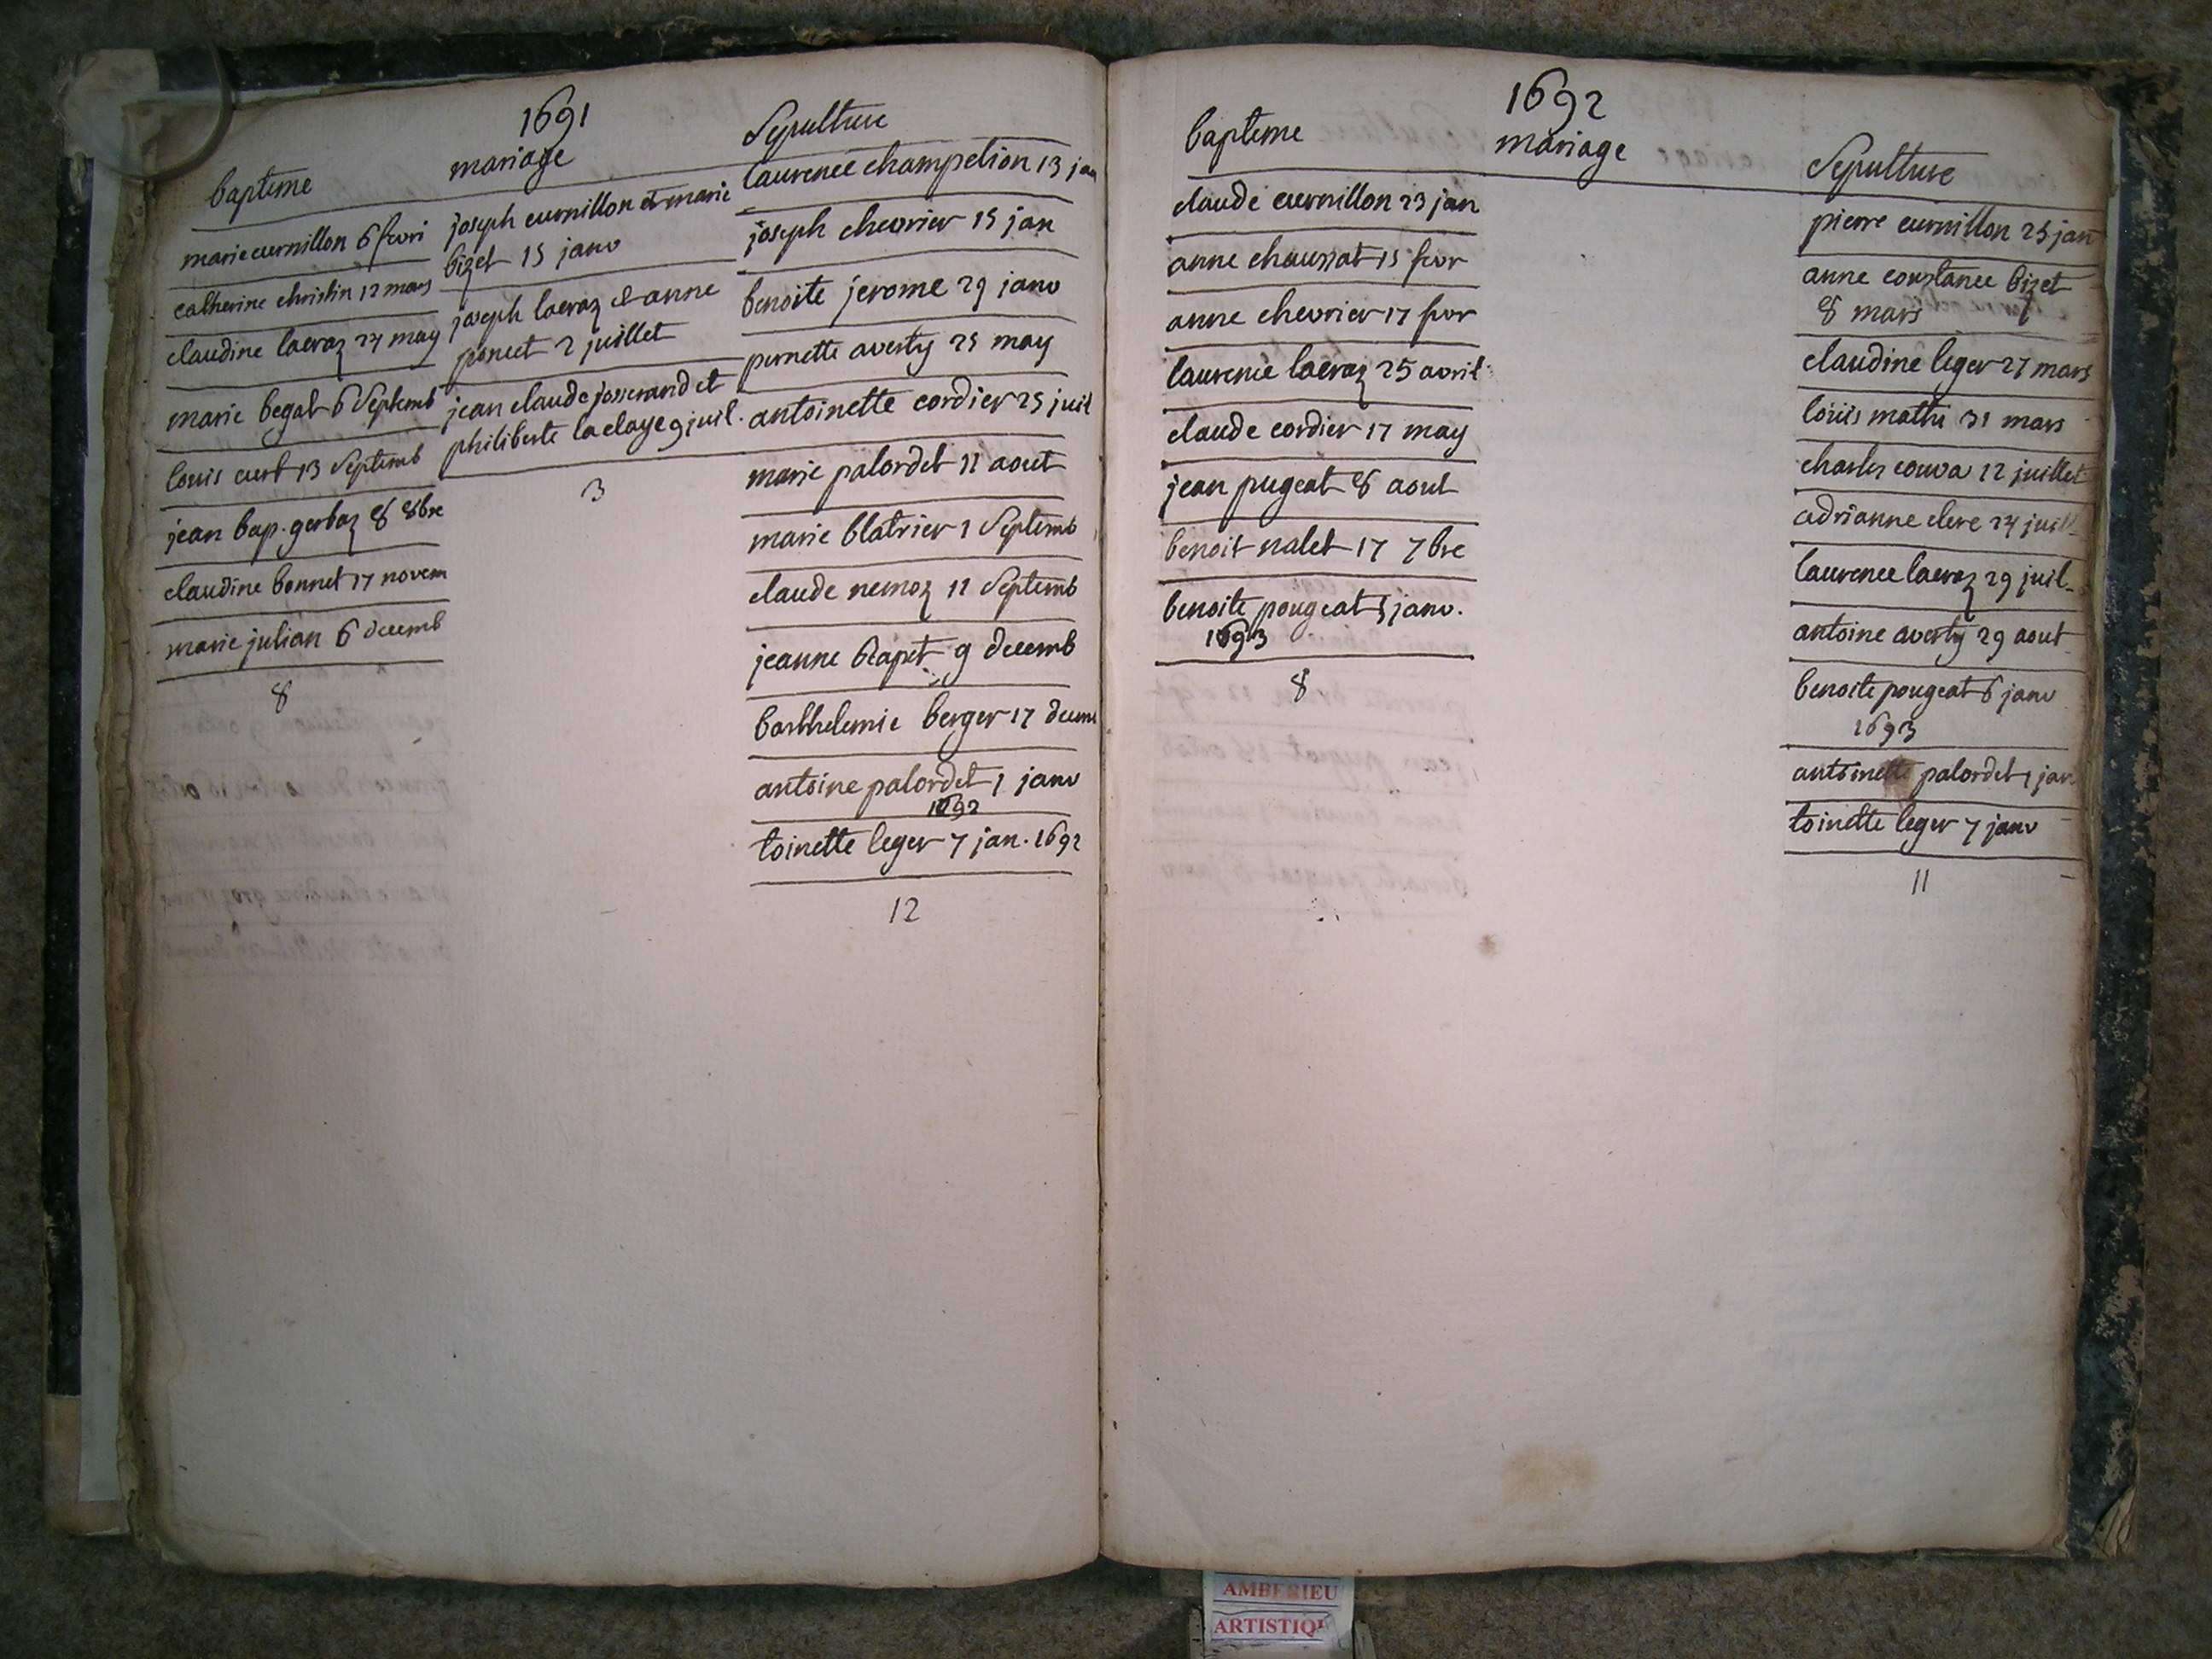 1691
bapteme
marie curnillon 6 fevri
catherine christin 12 mars
claudine lacraz 24 may
marie begat 6 Septemb
louis curt 13 Septemb
jean bap. gerbaz 8 8bre
claudine bonnet 17 novem
marie julian 6 decemb
8
mariage
joseph curnillon et marie
bizet 15 janv
joseph lacraz et anne
poncet 2 juillet
jean claude josserand et
philiberte la claye 9 juil.
3
Sepulture
laurence champelion 13 jan
joseph chevrier 15 jan
benoite jerome 29 janv
pernette averty 25 may
antoinette cordier 25 juil
marie palordet 11 aout
marie blatrier 1 Septemb
claude nemoz 11 Septemb
jeanne 9 decemb
barthelemie berger 17 decem
antoine palordet 1 janv
1692
toinette leger 7 jan. 1692
12
1692
bapteme
claude curnillon 23 jan
anne chaussat 15 fevr
anne chevrier 17 fevr
laurence lacraz 25 avril
claude cordier 17 may
jean pugeat 8 aout
benoit nalet 17 7bre
benoite pougeat 5 janv.
1693
8
mariage
Sepulture
pierre curnillon 25 jan
anne constance bizet
8 mars
claudine leger 27 mars
louis mathi 31 mars
charles couva 12 juillet
adrianne clere 24 juill
laurence lacraz 29 juil
antoine averty 29 aout
benoite pougeat 6 janv
1693
antoinette palordet 1 jan
toinette leger 7 janv
11
AMBERIEU
ARTISTIQ